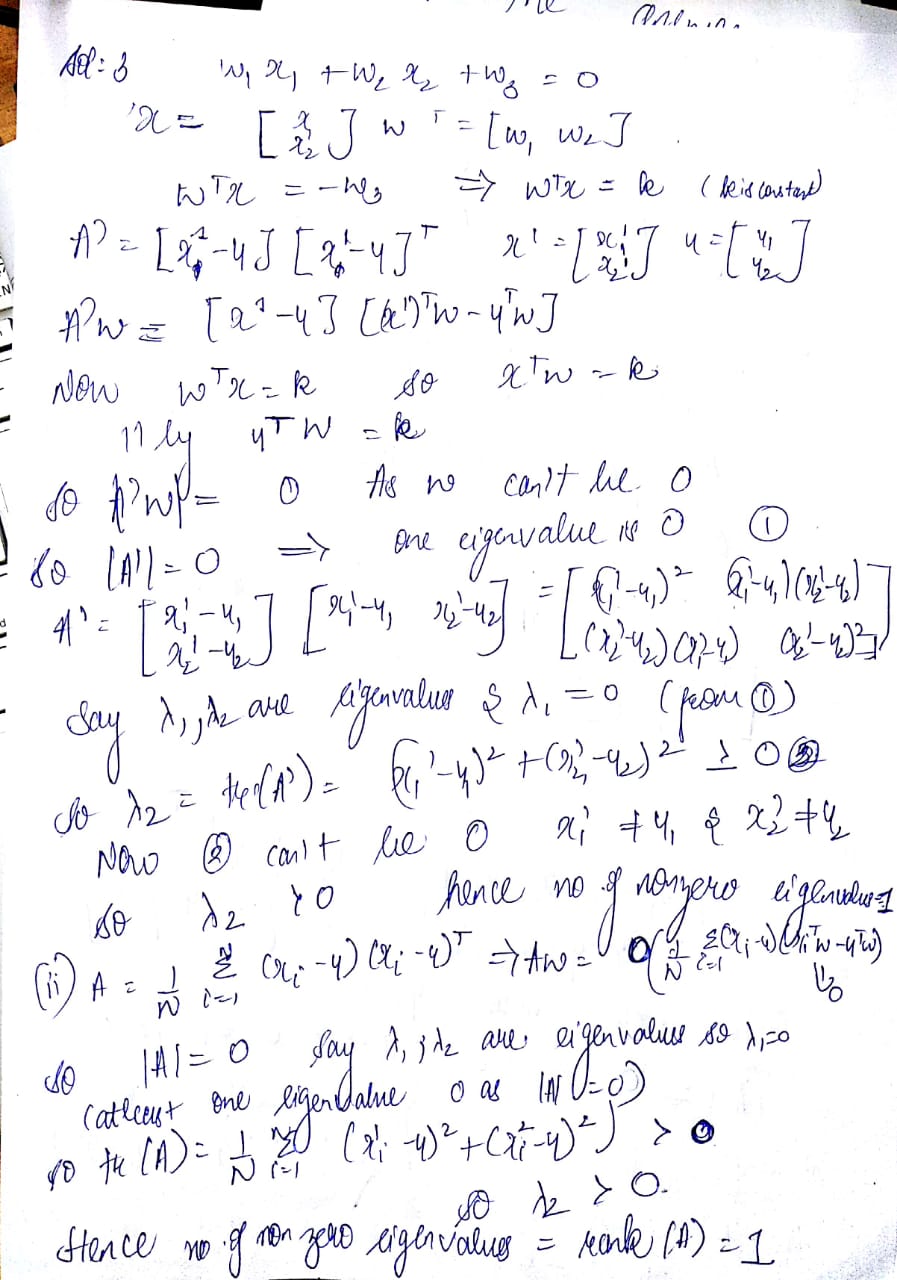 Sol: 3 w₁ x₁ + w₂ x₂ + w₃ = 0
x = [x₁ x₂] wᵀ = [w₁ w₂]
wᵀx = -w₃ ⇒ wᵀx = k (k is constant)
A' = [x¹-y] [x¹-y]ᵀ x¹ = [x₁¹ x₂¹] y = [y₁ y₂]
A'w = [x¹-y] [(x¹)ᵀw - yᵀw]
Now wᵀx = k so xᵀw = k
11ly yᵀw = k
so A'w = 0 As w can't be 0
So |A'| = 0 ⇒ one eigenvalue is 0 ①
A' = [x₁¹-y₁ x₂¹-y₂] [x₁¹-y₁ x₂¹-y₂] = [(x₁¹-y₁)² (x₁¹-y₁)(x₂¹-y₂) (x₂¹-y₂)(x₁¹-y₁) (x₂¹-y₂)²]
Say λ₁, λ₂ are eigenvalues & λ₁ = 0 (from ①)
So λ₂ = tr(A') = (x₁¹-y₁)² + (x₂¹-y₂)² ≥ 0 ②
Now ② can't be 0 x₁¹ ≠ y₁ & x₂¹ ≠ y₂
so λ₂ > 0 hence no of nonzero eigenvalue=1
(ii) A = 1/N Σᵢ₌₁ᴺ (xᵢ-y) (xᵢ-y)ᵀ ⇒ Aw = 0 (1/N Σᵢ₌₁ (xᵢ-y)(xᵢᵀw-yᵀw)
⇓0
so |A| = 0 Say λ₁ ; λ₂ are eigenvalues so λ₁=0
(atleast one eigenvalue 0 as |A|=0)
so tr(A) = 1/N Σᵢ₌₁ᴺ (xᵢ¹-y)² + (xᵢ²-y)² > 0
so λ₂ > 0.
Hence no of non zero eigenvalues = rank (A) = 1